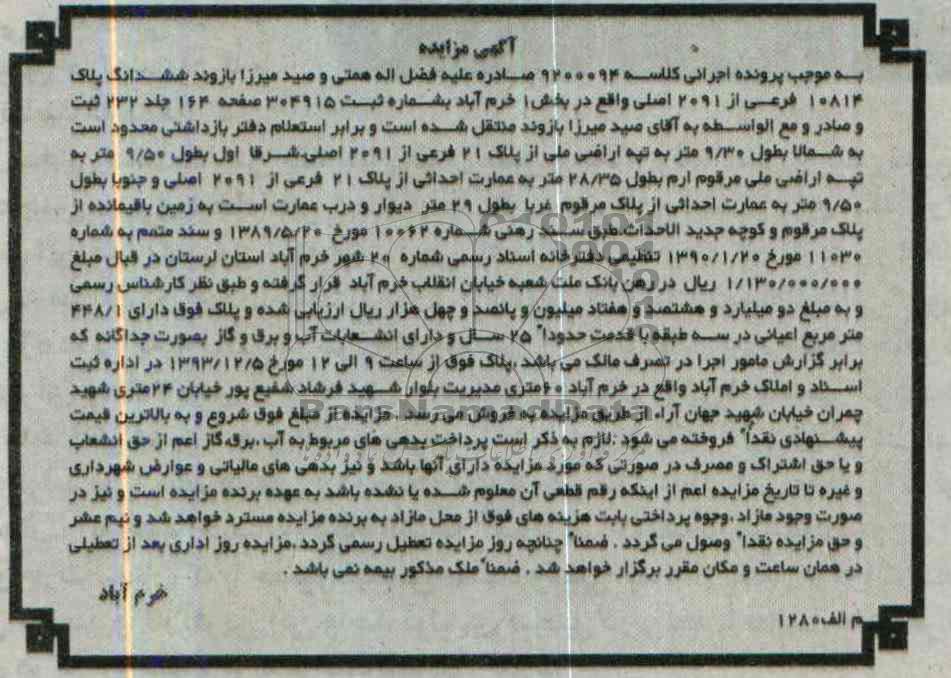 آگهی مزایده
به موجب پرونده اجرائی کلاسه ۹۲۰۰۰۹۴ صادره علیه فضل اله همتی و صید میرزا بازوند ششدانگ پلاک
۱۰۸۱۴ فرعی از ۲۰۹۱ اصلی واقع در بخش۱ خرم آباد بشماره ثبت ۳۰۴۹۱۵ صفحه ۱۶۴ جلد ۲۳۲ ثبت
و صادر و مع الواسطه به آقای صید میرزا بازوند منتقل شده است و برابر استعلام دفتر بازداشتی محدود است
به شمالا بطول ۹/۳۰ متر به تپه اراضی ملی از پلاک ۲۱ فرعی از ۲۰۹۱ اصلی.شرقا اول بطول ۹/۵۰ متر به
تپه اراضی ملی مرقوم ارم بطول ۲۸/۳۵ متر به عمارت احداثی از پلاک ۲۱ فرعی از ۲۰۹۱ اصلی و جنوبا بطول
۹/۵۰ متر به عمارت احداثی از پلاک مرقوم غربا بطول ۲۹ متر دیوار و درب عمارت است به زمین باقیمانده از
پلاک مرقوم و کوچه جدید الاحداث.طبق سند رهنی شماره ۱۰۰۶۲ مورخ ۱۳۸۹/۵/۲۰ و سند متمم به شماره
۱۱۰۳۰ مورخ ۱۳۹۰/۱/۲۰ تنظیمی دفترخانه اسناد رسمی شماره ۲۰ شهر خرم آباد استان لرستان در قبال مبلغ
۱/۱۳۰/۰۰۰/۰۰۰ ریال در رهن بانک ملت شعبه خیابان انقلاب خرم آباد قرار گرفته و طبق نظر کارشناس رسمی
و به مبلغ دو میلیارد و هشتصد و هفتاد میلیون و پانصد و چهل هزار ریال ارزیابی شده و پلاک فوق دارای ۴۴۸/۱
متر مربع اعیانی در سه طبقه با قدمت حدوداً ۲۵ سال و دارای انشعابات آب و برق و گاز بصورت جداگانه که
برابر گزارش مامور اجرا در تصرف مالک می باشد .پلاک فوق از ساعت ۹ الی ۱۲ مورخ ۱۳۹۳/۱۲/۵ در اداره ثبت
اسناد و املاک خرم آباد واقع در خرم آباد ۶۰متری مدیریت بلوار شهید فرشاد شفیع پور خیابان ۲۴متری شهید
چمران خیابان شهید جهان آراء از طریق مزایده به فروش می رسد . مزایده از مبلغ فوق شروع و به بالاترین قیمت
پیشنهادی نقداً فروخته می شود .لازم به ذکر است پرداخت بدهی های مربوط به آب ،برق،گاز اعم از حق انشعاب
و یا حق اشتراک و مصرف در صورتی که مورد مزایده دارای آنها باشد و نیز بدهی های مالیاتی و عوارض شهرداری
و غیره تا تاریخ مزایده اعم از اینکه رقم قطعی آن معلوم شده یا نشده باشد به عهده برنده مزایده است و نیز در
صورت وجود مازاد ،وجوه پرداختی بابت هزینه های فوق از محل مازاد به برنده مزایده مسترد خواهد شد و نیم عشر
و حق مزایده نقداً وصول می گردد . ضمناً چنانچه روز مزایده تعطیل رسمی گردد ،مزایده روز اداری بعد از تعطیلی
در همان ساعت و مکان مقرر برگزار خواهد شد . ضمناً ملک مذکور بیمه نمی باشد .
خرم آباد
م الف۱۲۸۰